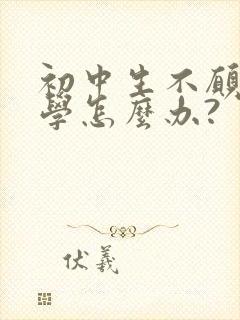 初中生不願
學怎麼办?
伏羲